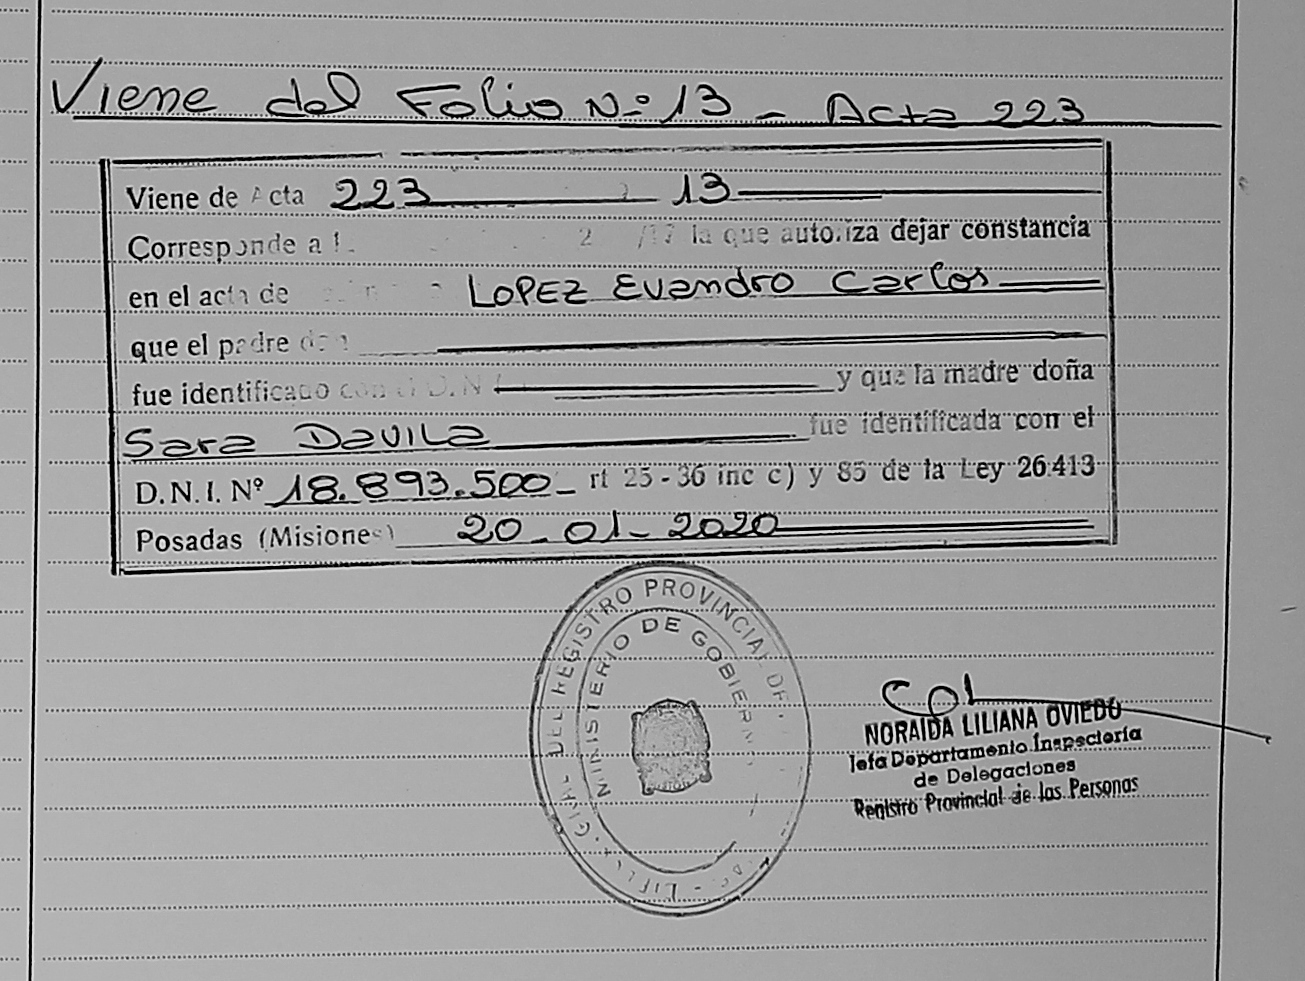 Viene del Folio Nº 13 - Acta 223
Viene de Acta 223 13
Corresponde a 2 /17 la que autoriza dejar constancia
en el acta de LOPEZ Evandro Carlos
que el padre don
fue identificado con el D.N.I. y que la madre doña
Sara Davila fue identificada con el
D.N.I. Nº 18.893.500 - rt 25 - 36 inc c) y 85 de la Ley 26.413
Posadas (Misiones) 20-01-2020
REGISTRO PROVINCIAL DE
MINISTERIO DE GOBIERNO
NORAIDA LILIANA OVIEDO
Jefa Departamento Inspectoría
de Delegaciones
Registro Provincial de las Personas